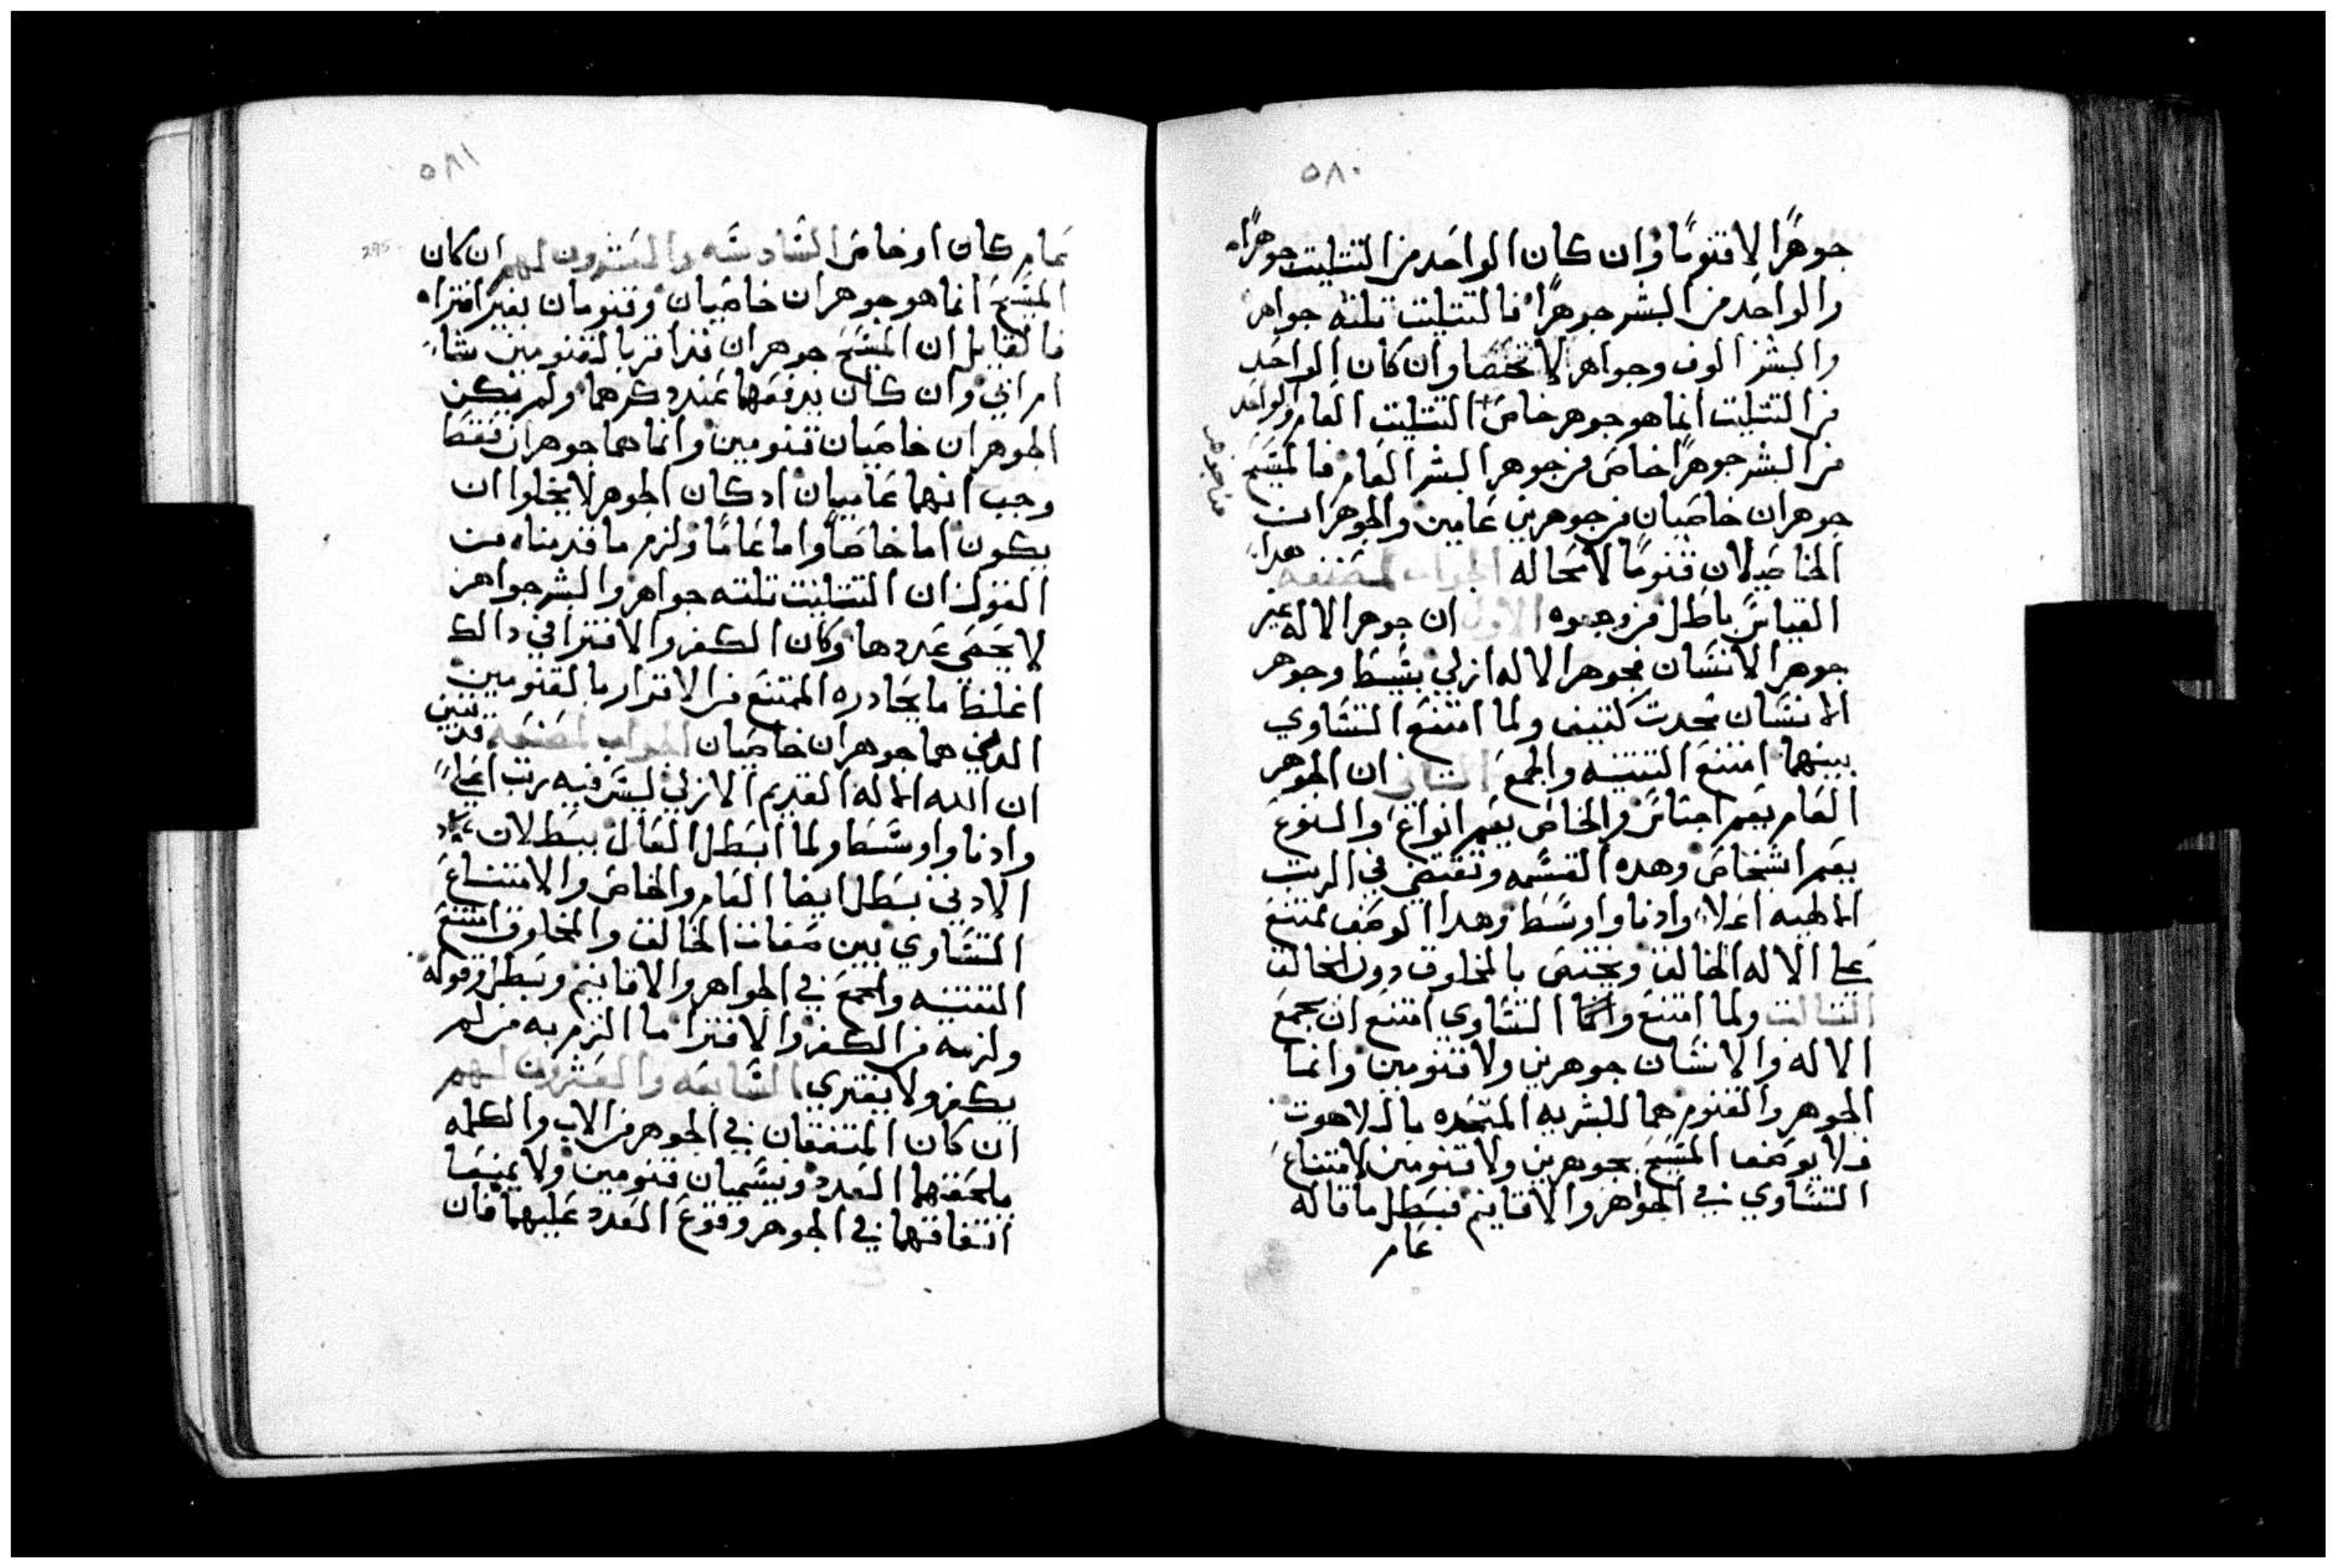 ٥٨٠
جوهرًا لا قنومًا وان كان الواحد من التتليت جوهرًا
والواحد من البشر جوهرًا فالتتليت تلته جواهر
والبشر الوف وجواهر لا تحصا وان كان الواحد
من التتليت انما هو جوهر خاص التتليت العام والواحد
من البشر جوهرًا خاص من جوهر البشر العام فالمسيح
جوهران خاصيان من جوهرين عامين والجوهران
الخاصيلان قنومًا لا محاله الجواب لمصنفه هدا
القياس باطل من وجوه الاول ان جوهر الاله غير
جوهر الانسان فجوهر الاله ازلي بسيط وجوهر
الانسان محدت كتيف ولما امتنع التساوي
بينهما امتنع التتنيه والجمع التاني ان الجوهر
العام يعم اجناس والخاص يعم انواع والنوع
يعم اشخاص وهده القسمه وتقتضي في الرتب
الالهيه اعلا وادنا واوسط وهدا الوصف ممتنع
علي الاله الخالق ويختص بالمخلوق دون الخالق
التالت ولما امتنع وانما التساوي امتنع ان يجمع
الاله والانسان جوهرين ولا قنومين وانما
الجوهر والقنوم هما للبشريه المتحده بالاهوت
فلا يوصف المسيح بجوهرين ولا قنومين لامتناع
التساوي في الجواهر والاقانيم فبطل ما قاله
عام
٥٨١
295
عام كان او خاص السادسه والعشرون لهم ان كان
المسيح انما هو جوهران خاصيان وقنومان بغير افترا
فالقايل ان المسيح جوهران قد اقر بالقنومين شا
ام ابي وان كان يدفعهما عند دكرهما ولم يكن
الجوهران خاصيان قنومين وانما هما جوهران فقط
وجب انهما عاميان اد كان الجوهر لا يخلوا ان
يكون اما خاصًا واما عامًا ولزم ما قدمناه من
القول ان التتليت تلته جواهر والبشر جواهر
لا يحصي عددها وكان الكفر والافترا في دالك
اغلظ ما يحادره الممتنع من الاقرار بالقنومين
الدين هما جوهران خاصيان الجواب لمصنفه قد تبين
ان الله الاله القديم الازلي ليس فيه رتب اعلي
وادنا واوسط ولما ابطل العال ببطلان
الادني بطل ايضا العام والخاص والامتناع
التساوي بين صفات الخالق والمخلوق امتنع
التتنيه والجمع في الجواهر والاقانيم وبطل قوله
ولزمه من الكفر والافترا ما الزم به من لم
يكفر ولا يفتري السابعه والعشرون لهم
ان كان المتفقان في الجوهر من الاب والكلمه
يلحقهما العدد ويسميان قنومين ولا يمنعا
اتفاقهما في الجوهر وقوع العدد عليهما فان